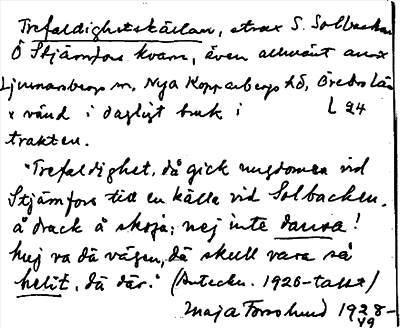 Trefaldighetskällan, strax S. Solbacken
Ö Stjärnfors kvarn, även allmänt anv
Ljusnarsbergs sn, Nya Kopparbergs hd, Örebro län
x vänd i dagligt bruk i L 24
trakten.
"Trefaldighet, då gick ungdomen vid
Stjärnfors till en källa vid Solbacken.
å drack å skoja; nej inte dansa!
huj va dä vägen, dä skull vara så
helit, dä där." (Anteckn. 1920-talet)
Maja Forsslund 1928-
49